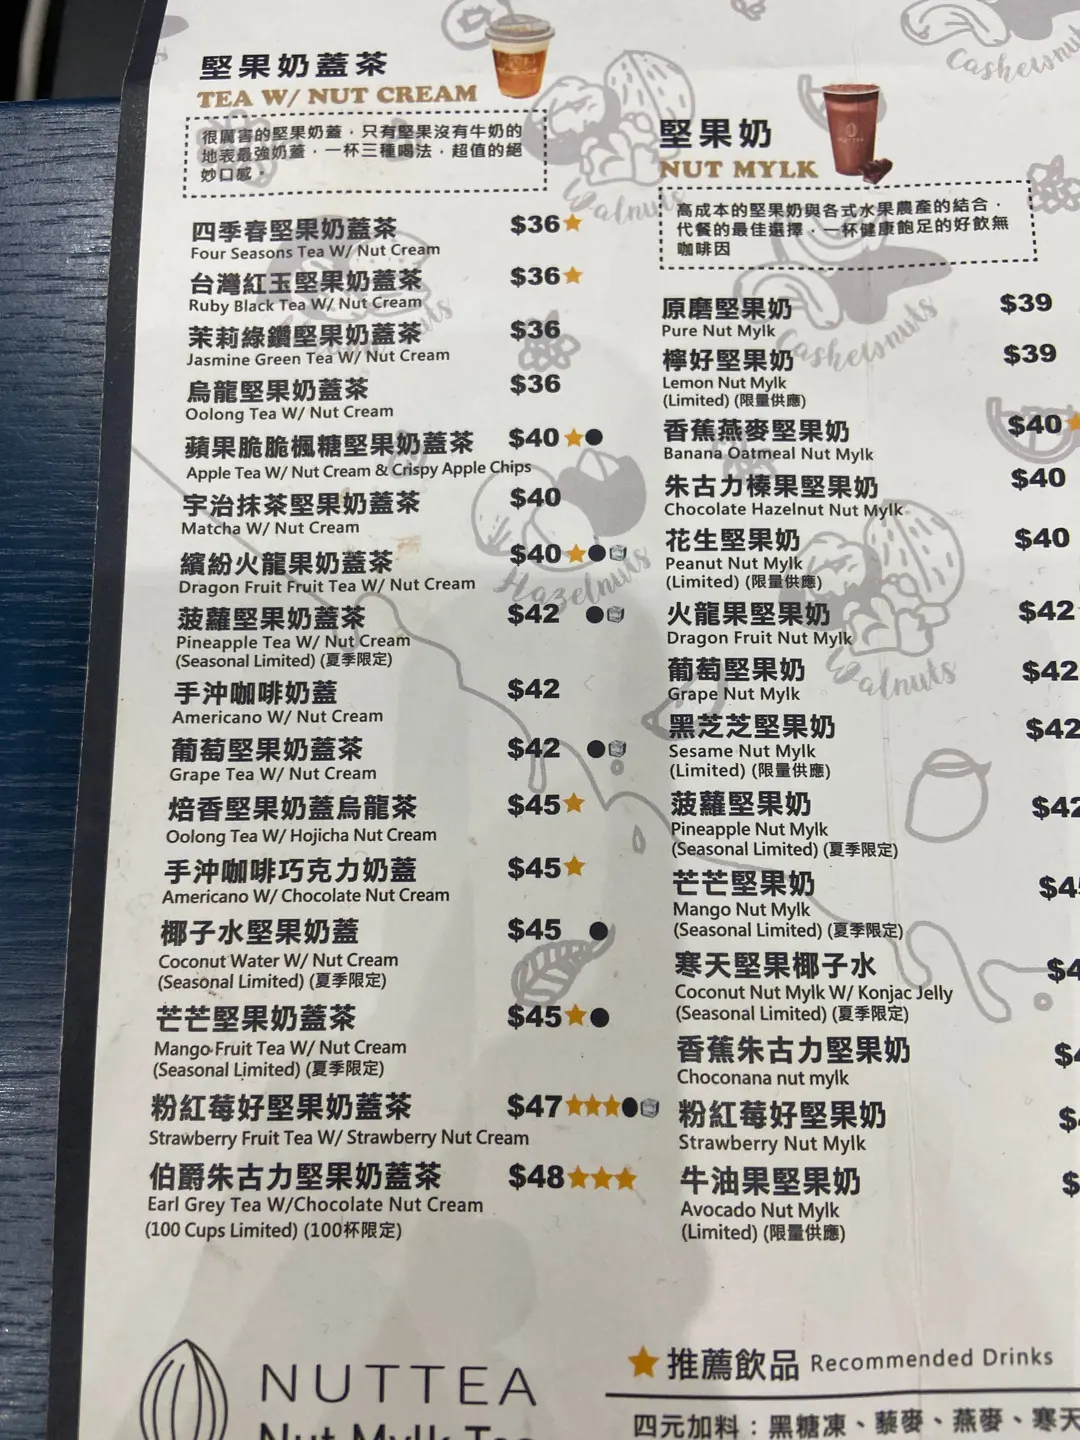 堅果奶蓋茶
TEA W/ NUT CREAM
很厲害的堅果奶蓋．只有堅果沒有牛奶的
地表最強奶蓋．一杯三種喝法．超值的絕
妙口感。
四季春堅果奶蓋茶 $36
Four Seasons Tea W/ Nut Cream
台灣紅玉堅果奶蓋茶 $36
Ruby Black Tea W/ Nut Cream
茉莉綠鑽堅果奶蓋茶 $36
Jasmine Green Tea W/ Nut Cream
烏龍堅果奶蓋茶 $36
Oolong Tea W/ Nut Cream
蘋果脆脆楓糖堅果奶蓋茶 $40
Apple Tea W/ Nut Cream & Crispy Apple Chips
宇治抹茶堅果奶蓋茶 $40
Matcha W/ Nut Cream
繽紛火龍果奶蓋茶 $40
Dragon Fruit Fruit Tea W/ Nut Cream
菠蘿堅果奶蓋茶 $42
Pineapple Tea W/ Nut Cream
(Seasonal Limited) (夏季限定)
手沖咖啡奶蓋 $42
Americano W/ Nut Cream
葡萄堅果奶蓋茶 $42
Grape Tea W/ Nut Cream
焙香堅果奶蓋烏龍茶 $45
Oolong Tea W/ Hojicha Nut Cream
手沖咖啡巧克力奶蓋 $45
Americano W/ Chocolate Nut Cream
椰子水堅果奶蓋 $45
Coconut Water W/ Nut Cream
(Seasonal Limited) (夏季限定)
芒芒堅果奶蓋茶 $45
Mango Fruit Tea W/ Nut Cream
(Seasonal Limited) (夏季限定)
粉紅莓好堅果奶蓋茶 $47
Strawberry Fruit Tea W/ Strawberry Nut Cream
伯爵朱古力堅果奶蓋茶 $48
Earl Grey Tea W/Chocolate Nut Cream
(100 Cups Limited) (100杯限定)
NUTTEA
Nut Mylk Tea
Cashewnuts
Walnuts
堅果奶
NUT MYLK
高成本的堅果奶與各式水果農產的結合．
代餐的最佳選擇．一杯健康飽足的好飲無
咖啡因
原磨堅果奶 $39
Pure Nut Mylk
Cashewnuts
檸好堅果奶 $39
Lemon Nut Mylk
(Limited) (限量供應)
香蕉燕麥堅果奶 $40
Banana Oatmeal Nut Mylk
朱古力榛果堅果奶 $40
Chocolate Hazelnut Nut Mylk
Hazelnuts
花生堅果奶 $40
Peanut Nut Mylk
(Limited) (限量供應)
火龍果堅果奶 $42
Dragon Fruit Nut Mylk
葡萄堅果奶 $42
Grape Nut Mylk
Walnuts
黑芝芝堅果奶 $42
Sesame Nut Mylk
(Limited) (限量供應)
菠蘿堅果奶 $42
Pineapple Nut Mylk
(Seasonal Limited) (夏季限定)
芒芒堅果奶 $4
Mango Nut Mylk
(Seasonal Limited) (夏季限定)
寒天堅果椰子水 $4
Coconut Nut Mylk W/ Konjac Jelly
(Seasonal Limited) (夏季限定)
香蕉朱古力堅果奶 $4
Choconana nut mylk
粉紅莓好堅果奶 $
Strawberry Nut Mylk
牛油果堅果奶 $
Avocado Nut Mylk
(Limited) (限量供應)
推薦飲品 Recommended Drinks
四元加料：黑糖凍、藜麥、燕麥、寒天